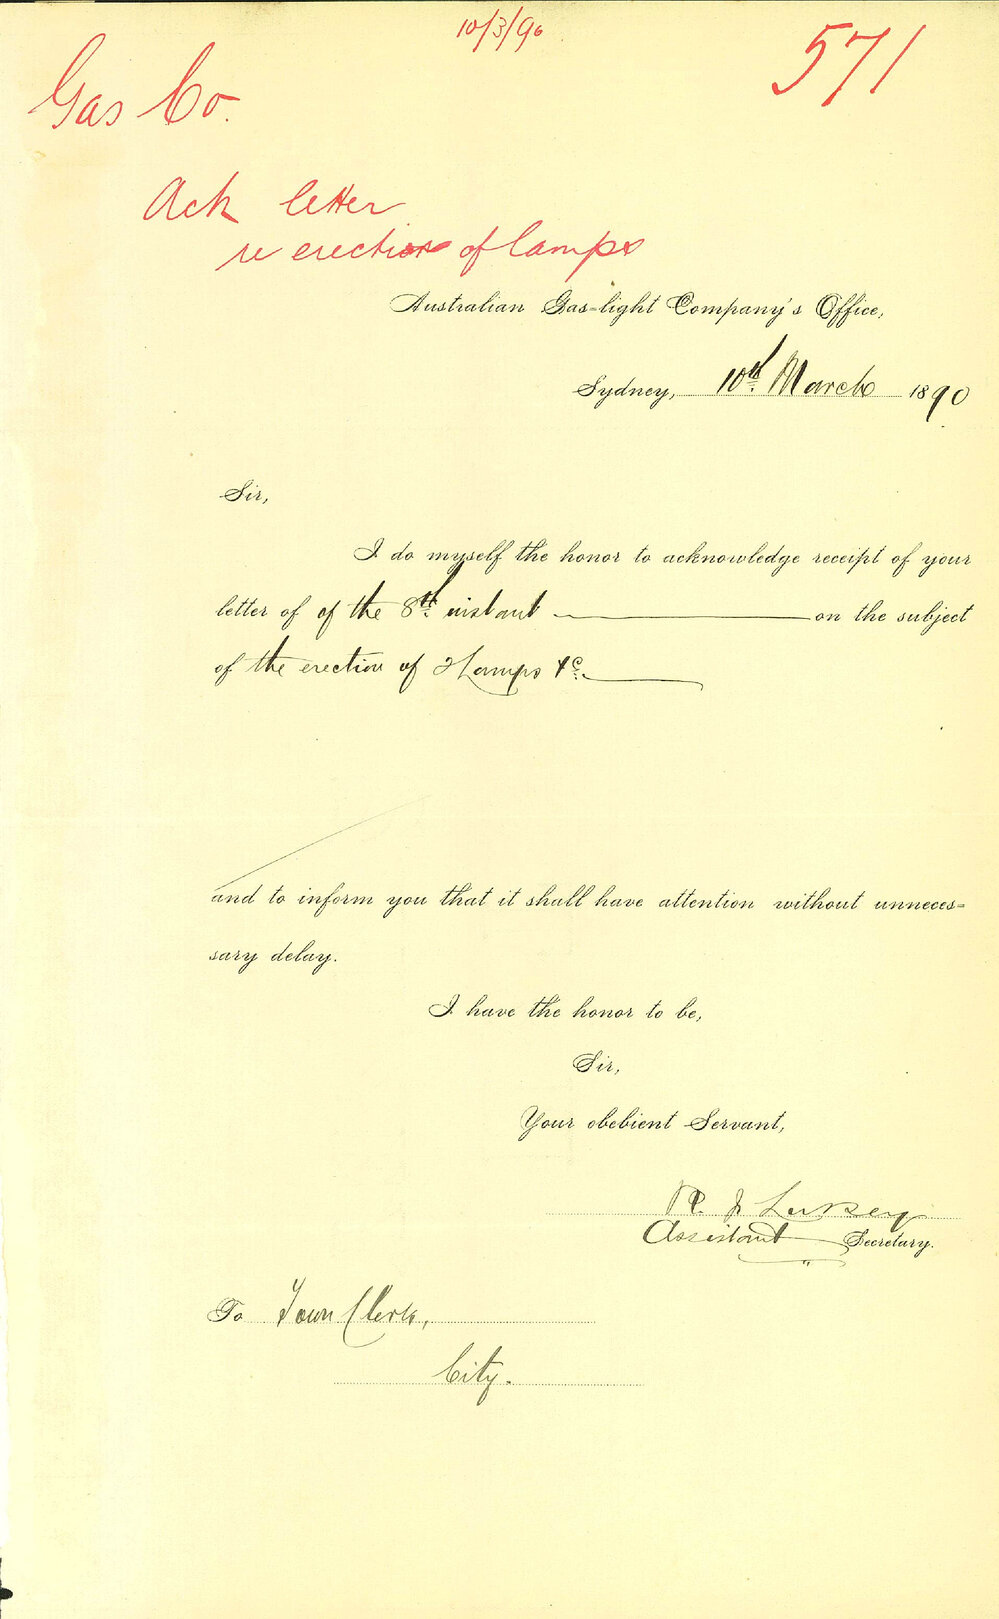 10/3/90
571
Gas Co.
Ack letter
re erection of lamps
Australian Gas-light Company's Office,
Sydney, 10th March 1890
Sir,
I do myself the honor to acknowledge receipt of your
letter of of the 8th instant on the subject
of the erection of 2 Lamps &c.
and to inform you that it shall have attention without unneces-
sary delay.
I have the honor to be,
Sir,
Your obebient Servant,
R. J.
Assistant Secretary.
To Town Clerk,
City.